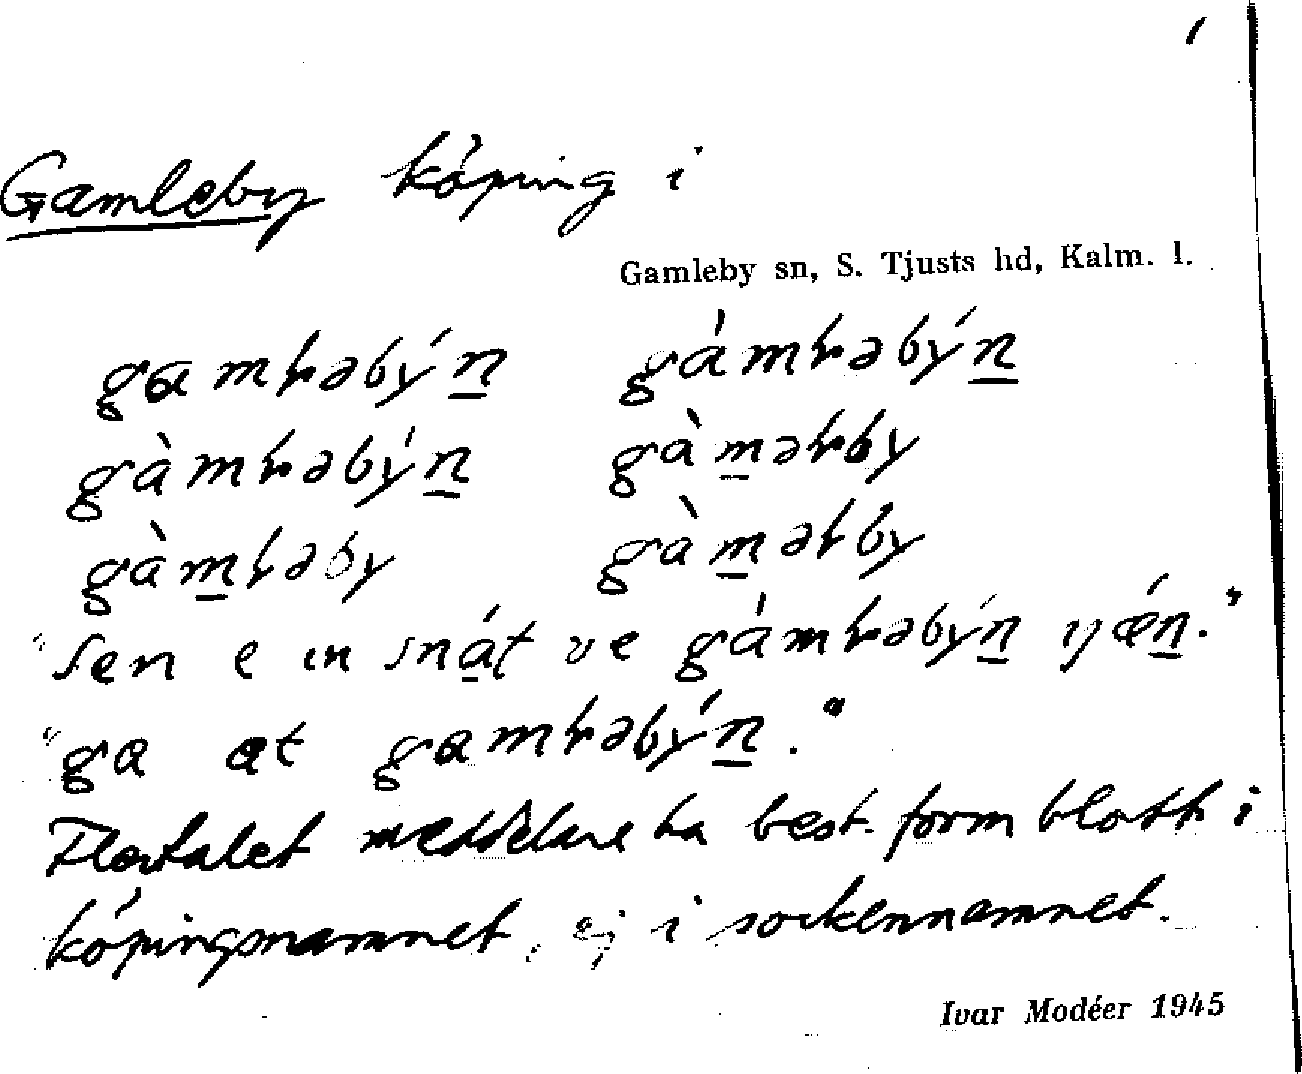 Gamleby köping i
Gamleby sn, S. Tjusts hd, Kalm. l.
gamləbýn gámləbýn
gàmləbýn gàməlby
gàmləby gàməlby
"Sen e in snát ve gámləbýn ijǽn."
"ga at gamləbýn."
Flertalet meddelare ha best. form blott i
köpingsnamnet, ej i sockennamnet.
Ivar Modéer 1945